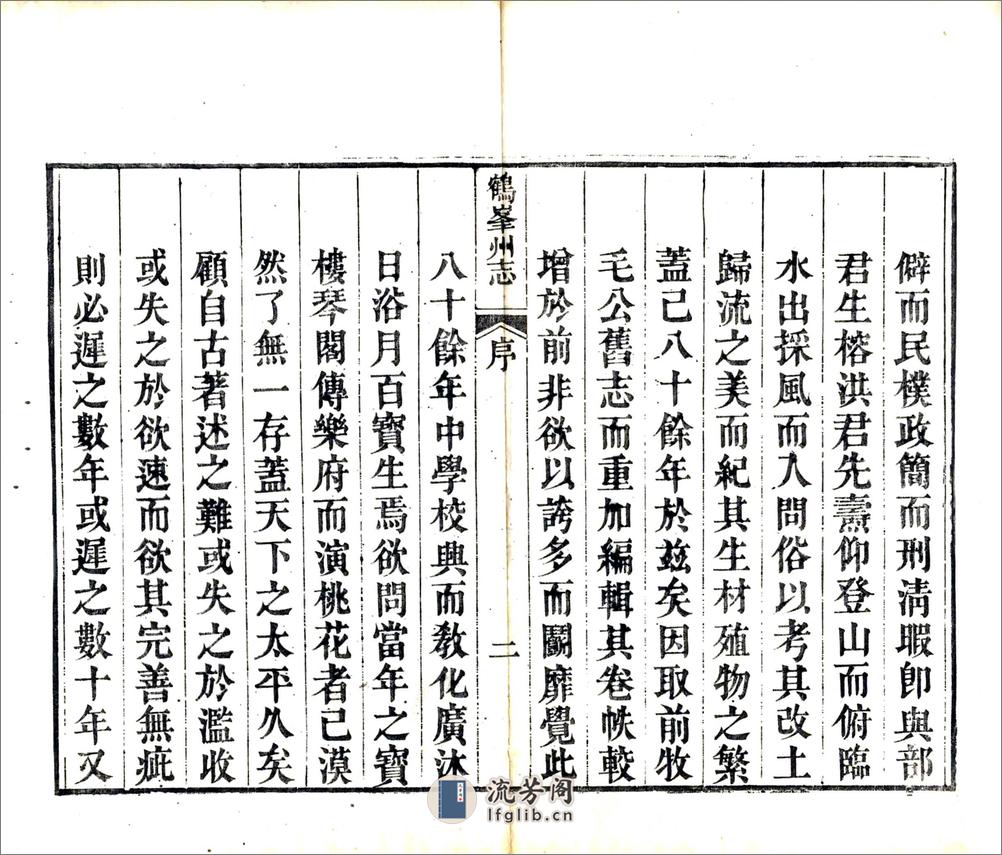 僻而民樸政簡而刑清暇即與部
君生榕洪君先燾仰登山而俯臨
水出採風而入問俗以考其改土
歸流之美而紀其生材殖物之繁
蓋已八十餘年於茲矣因取前牧
毛公舊志而重加編輯其卷帙較
增於前非欲以誇多而鬭靡覺此
鶴峯州志
序
二
八十餘年中學校興而教化廣沐
日浴月百寶生焉欲問當年之寶
樓琴閣傳樂府而演桃花者已漠
然了無一存蓋天下之太平久矣
顧自古著述之難或失之於濫收
或失之於欲速而欲其完善無疵
則必遲之數年或遲之數十年又
流芳阁
lfglib.cn